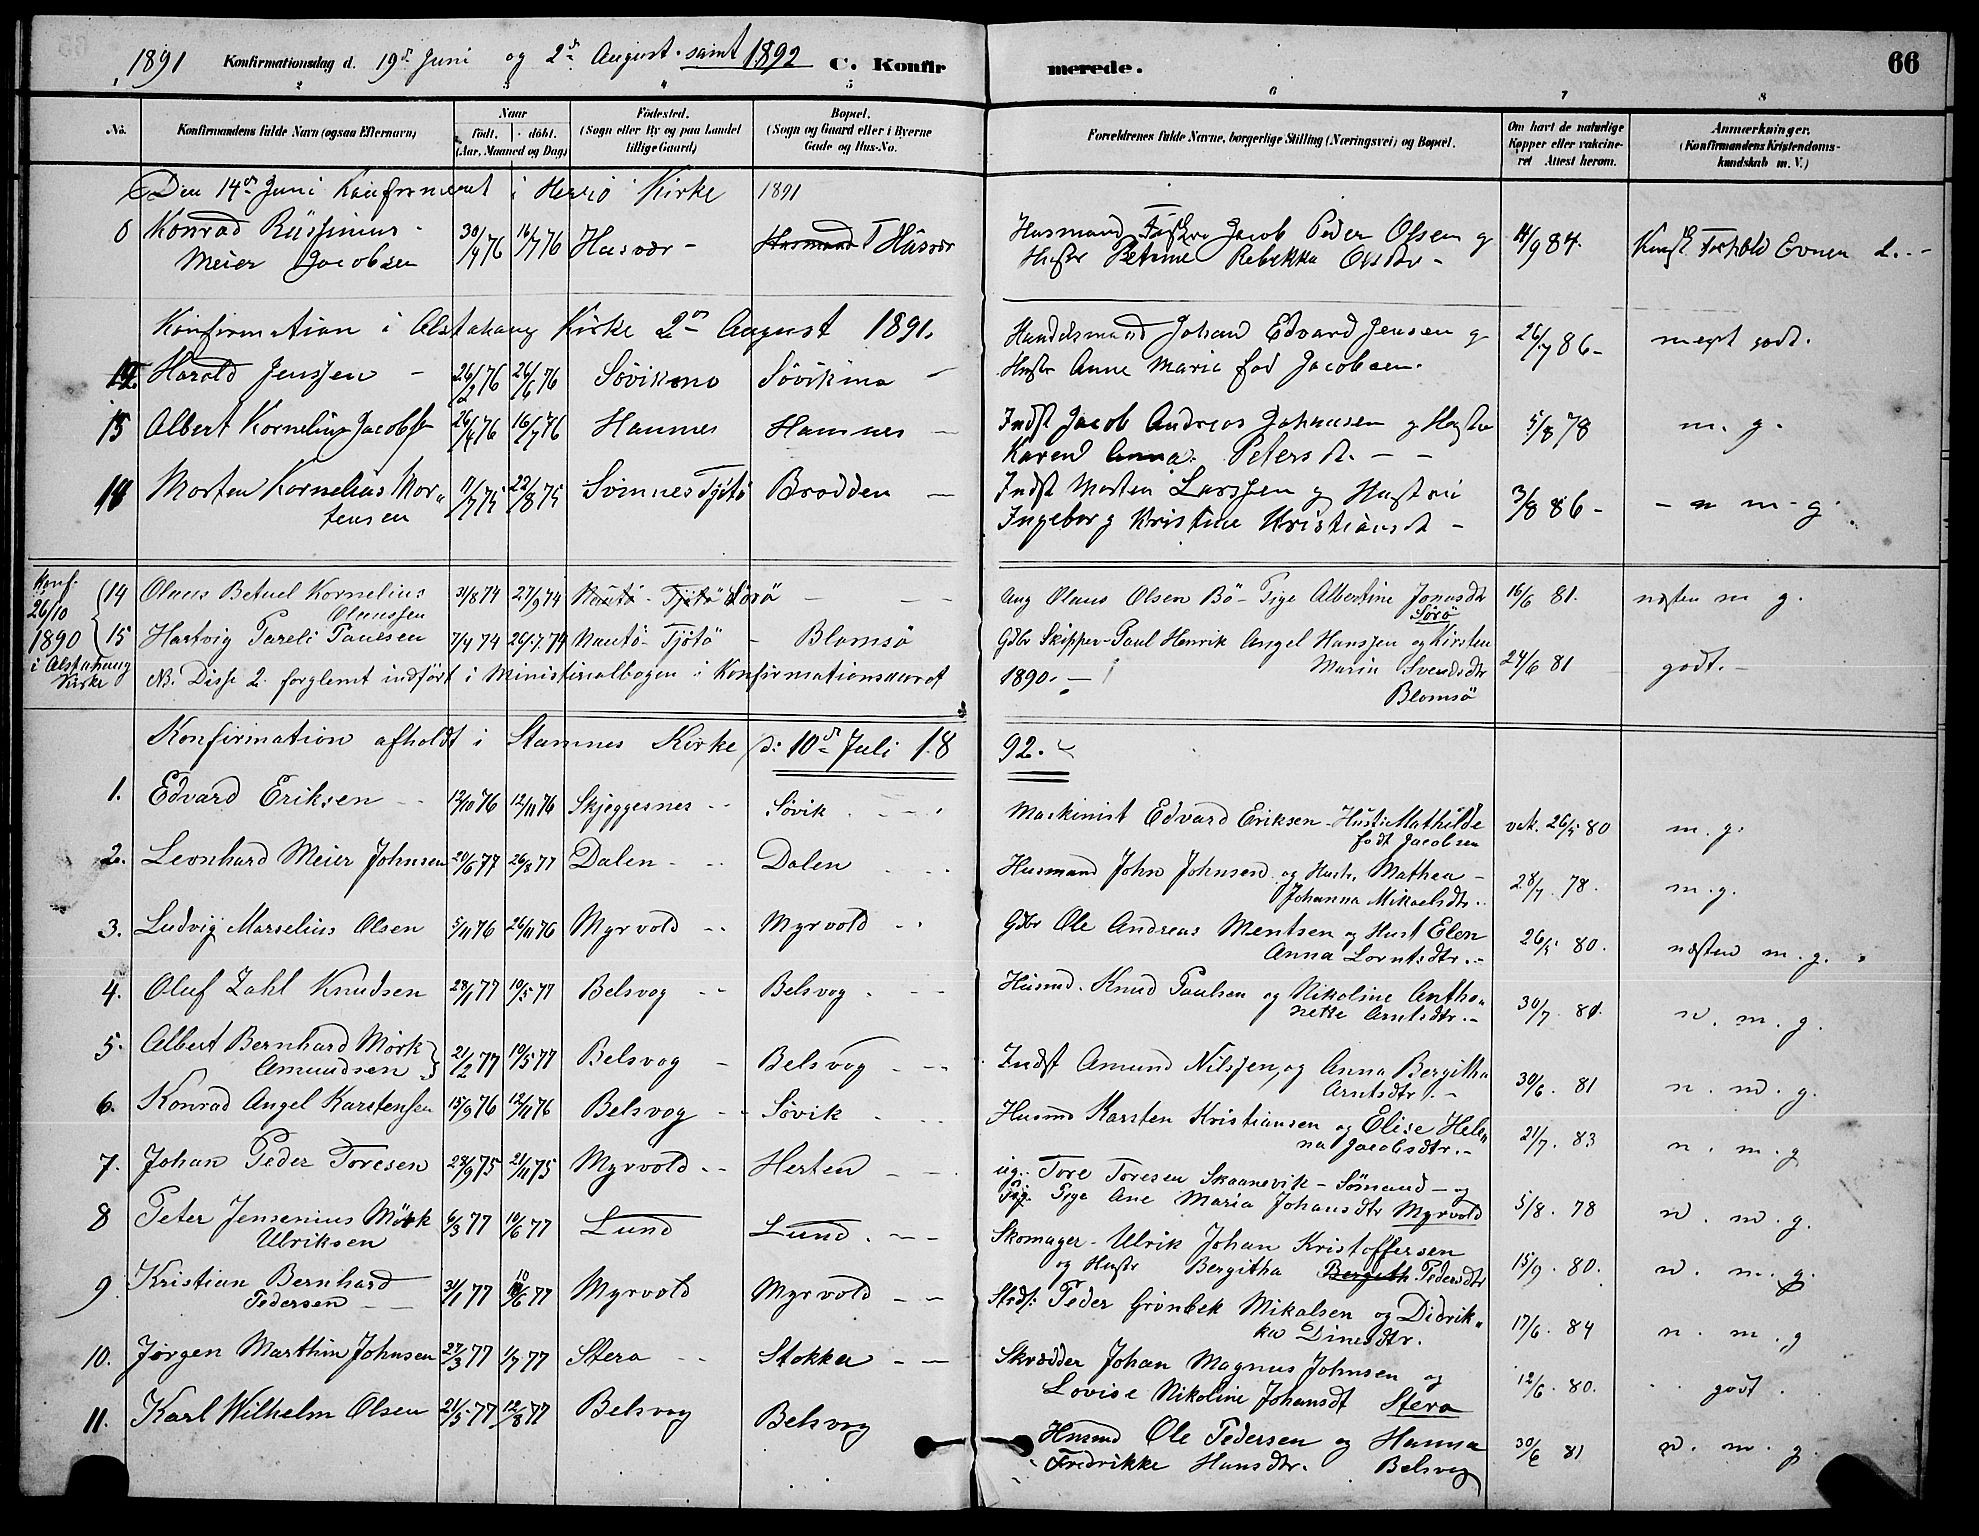 1891 Konfirmationsdag d. 19de Juni og 2den August. samt 1892 C. Konfirmerede. 66
2 3 4 5 6 7 8
No. Konfirmandens fulde Navn (ogsaa Efternavn) Naar født, døbt. (Aar, Maaned og Dag) Fødested. (Sogn eller By og paa Landet tillige Gaard) Bopæl. (Sogn og Gaard eller i Byerne Gade og Hus-No. Forældrenes fulde Navne, borgerlige Stilling (Næringsvei) og Bopæl. Om havt de naturlige Kopper eller vakcineret Attest herom. Anmærkninger. (Konfirmandens Kristendomskundskab m. V.)
Den 14de Juni Konfirmeret i Herrø Kirke 1891
Konrad 30/4 76 16/7 76 Husvær - Husmand Husvær Husmand Jacob Peder Olsen og 11/9 84.
Meier Jacobsen Hustr Petrine Rebekka Olsdtr -
Konfirmation i Alstahaug Kirke 2den August 1891.
14. Harold Jenssen - 26/2 76 26/6 76 Søvikmo Søvikmo Handelsmand Johan Edvard Jensen og 26/7 86 - meget godt.
Hustr Anne Maria fød Jacobsen.
15 Albert Kornelius Jacobsen 26/4 76 16/7 76 Hamnes Hamnes - Indst Jacob Andreas Johansen og Hustr 5/8 78 m. g.
Karen Anna. Petersdt. - -
Morten Kornelius Mortensen 11/7 75 22/8 75 Sømnes Tjøtø Brodden - Indst Morten Larssen og Hustru 3/8 86 - - n m - g.
Ingeborg Kristine Kristiansdt -
Konf. 26/10 1890 i Alstahaug Kirke
14 Olaus Betuel Kornelius Olaussen 31/8 74 27/9 74 Nautø - Tjøtø Sørø - - - Ung Olaus Olsen Bø - Pige Albertine Jonasdtr Sørø 16/6 81. næsten m g.
15 Hartvig Pareli Paulsen 7/4 74 26/7 74 Nautø - Tjøtø - Blomsø Gdbr Skipper - Paul Henrik Angel Hanssen og Kirsten Maria Svendsdtr Blomsø 24/6 81 godt. -
NB. Disse 2 forglemt indført i Ministerialbogen i Konfirmationsaaret 1890. -
Konfirmation afholdt i Stamnes Kirke d: 10de Juli 1892.
1. Edvard Eriksen - - 12/10 76 12/11 76 Skjeggesnes - - Søvik Maskinist Edvard Eriksen - Hustr. Mathilde født Jacobsen vak. 26/5 80 m. g.
2. Leonhard Meier Johnsen 20/6 77 26/8 77 Dalen - - Dalen Husmand John Johnsen og Hustr. Mathea - Johanna Mikaelsdtr. 28/7. 78. m. g.
3. Ludvig Marselius Olsen 5/11 76 26/11 76 Myrvold - - Myrvold Gdbr Ole Andreas Mentsen og Hust Elen Anna Lorntsdtr. - 26/5 80. næsten m. g.
4. Oluf Zahl Knudsen 28/1 77 10/5 77 Belsvog - - Belsvog Husmd. Knud Paulsen og Nikoline Anthonette Arntsdtr. - 30/7. 81. n. m. g.
5. Albert Bernhard Mørk Amundsen 21/2 77 10/5 77 Belsvog - Belsvog Indst Amund Nilssen og Anna Bergitha Arntsdtr. - 30/6. 81 n. m. g.
6. Konrad Angel Karstensen 15/9 76 12/11 76 Belsvog - - Søvik Husmd Karsten Kristiansen og Elise Helena Jacobsdtr. - 21/7. 83 n. m. g
7. Johan Peder Toresen 28/9 75 21/11 75 Myrvold - - Herten - - ug. Tore Toresen Skaanevik - Sømand - og Pige Ane Maria Johansdtr Myrvold 5/8. 78 n. m. g.
8 Peter Jensenius Mørk Ulriksen 6/3 77 10/6 77 Lund Lund. - - Skomager - Ulrik Johan Kristoffersen og Hustr Bergitha Bergith Pedersdtr 15/9. 80. n. m. g.
9. Kristian Bernhard Pedersen - 31/1 77 10/6 77 Myrvold Myrvold - - Peder Grønbek Mikalsen og Didrikka Dinesdtr. 17/6. 84 n. m. g
10. Jørgen Marthin Johnsen 27/3 77 1/7 77 Stera - - Stokka - - Skrædder Johan Magnus Johnsen og Lovise Nikoline Johansdt Stera 12/6. 80. godt.
11. Karl Wilhelm Olsen 21/5 77 12/8 77 Belsvog Belsvog Husmd Ole Pedersen og Hanna Fredrikke Hansdtr. Belsvog 30/6 81 n. m. g.